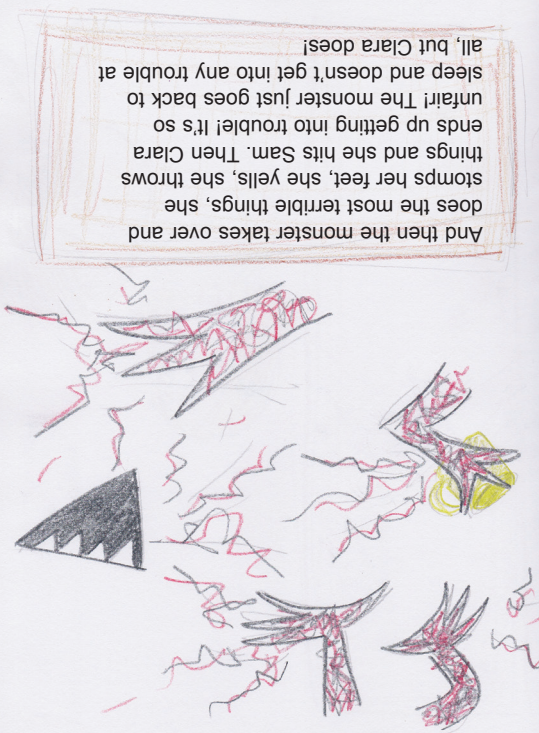 And then the monster takes over and
does the most terrible things, she
stomps her feet, she yells, she throws
things and she hits Sam. Then Clara
ends up getting into trouble! It's so
unfair! The monster just goes back to
sleep and doesn't get into any trouble at
all, but Clara does!